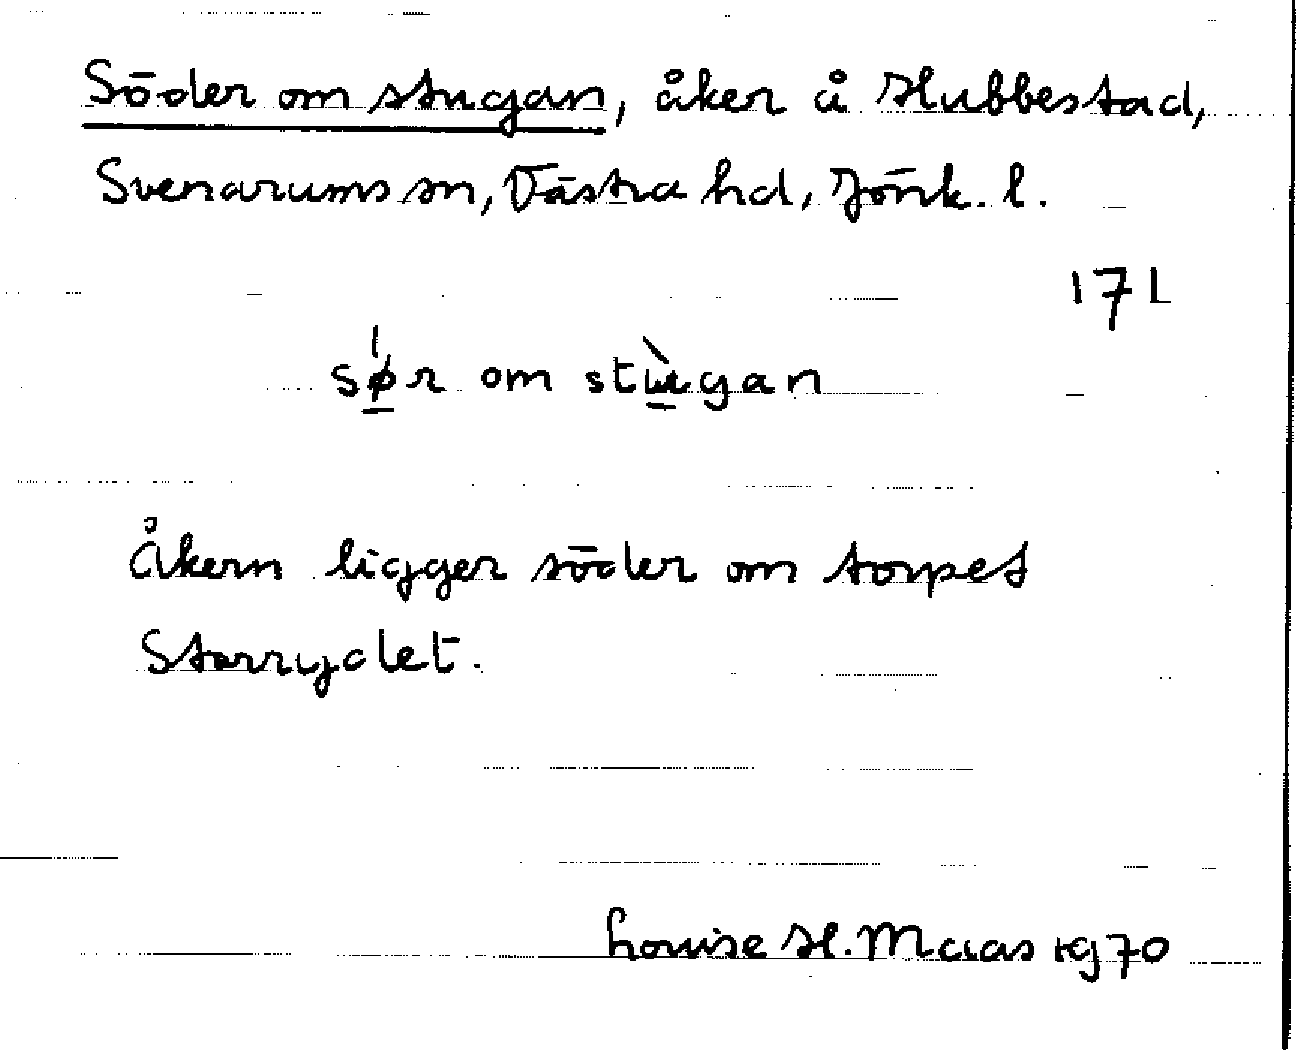 Söder om stugan, åker å Hubbestad,
Svenarums sn, Västra hd, Jönk. l.
171
sǿ̱r om stɯ̱̀gan
Åkern ligger söder om torpet
Starrydet.
Louise H. Maas 1970